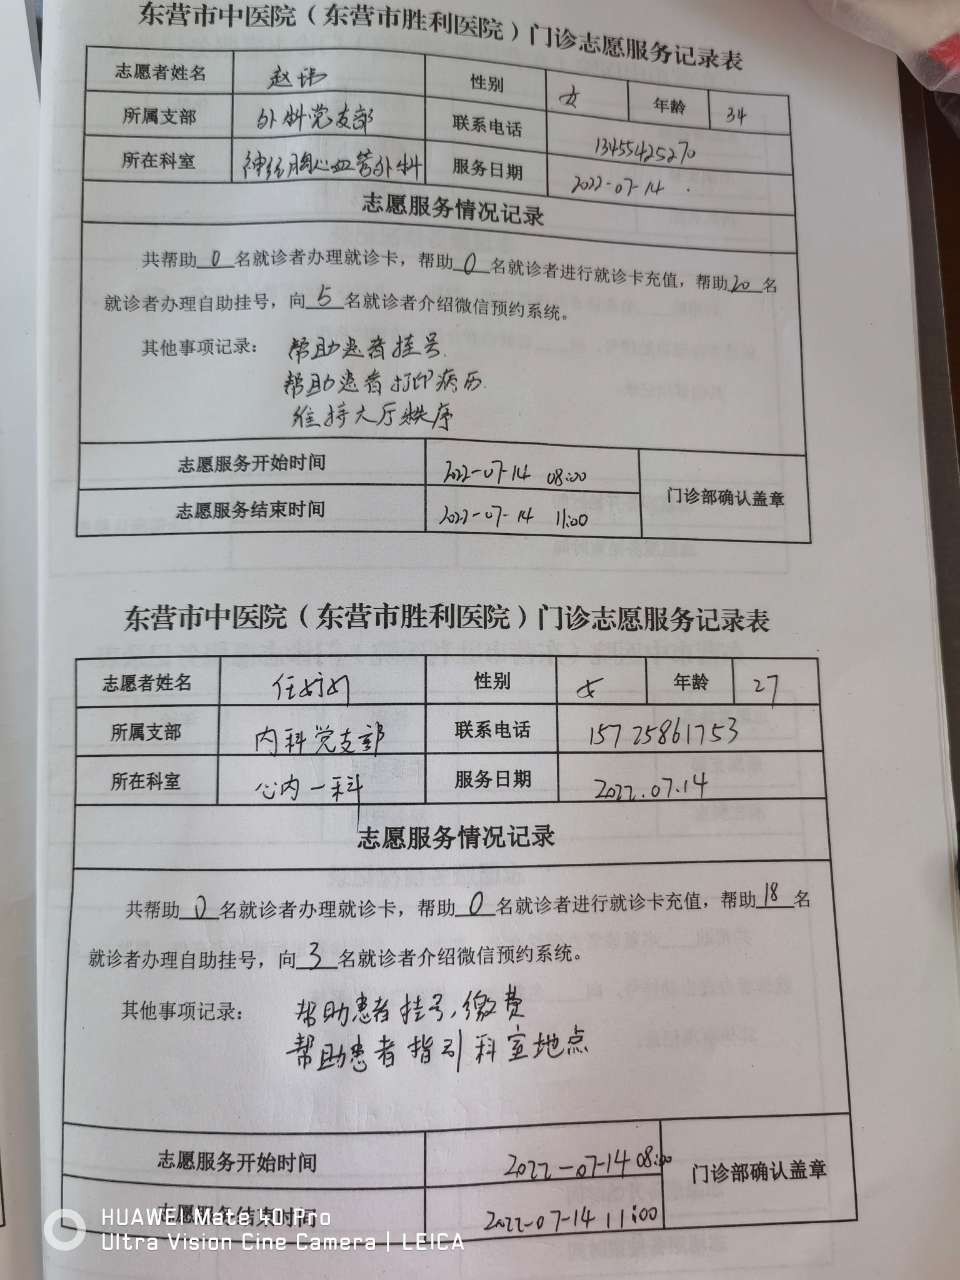 东营市中医院（东营市胜利医院）门诊志愿服务记录表
志愿者姓名 赵玮 性别 女 年龄 34
所属支部 外科党支部 联系电话 13455425270
所在科室 神经胸心血管外科 服务日期 2022-07-14
志愿服务情况记录
共帮助0名就诊者办理就诊卡，帮助0名就诊者进行就诊卡充值，帮助20名
就诊者办理自助挂号，向5名就诊者介绍微信预约系统。
其他事项记录： 帮助患者挂号.
帮助患者打印病历.
维持大厅秩序
志愿服务开始时间 2022-07-14 08:00
门诊部确认盖章
志愿服务结束时间 2022-07-14 11:00
东营市中医院（东营市胜利医院）门诊志愿服务记录表
志愿者姓名 任 性别 女 年龄 27
所属支部 内科党支部 联系电话 15725861753
所在科室 心内一科 服务日期 2022.07.14
志愿服务情况记录
共帮助0名就诊者办理就诊卡，帮助0名就诊者进行就诊卡充值，帮助18名
就诊者办理自助挂号，向3名就诊者介绍微信预约系统。
其他事项记录： 帮助患者挂号、缴费
帮助患者指引科室地点
志愿服务开始时间 2022-07-14 08:00
门诊部确认盖章
志愿服务结束时间 2022-07-14 11:00
HUAWEI Mate 40 Pro
Ultra Vision Cine Camera | LEICA